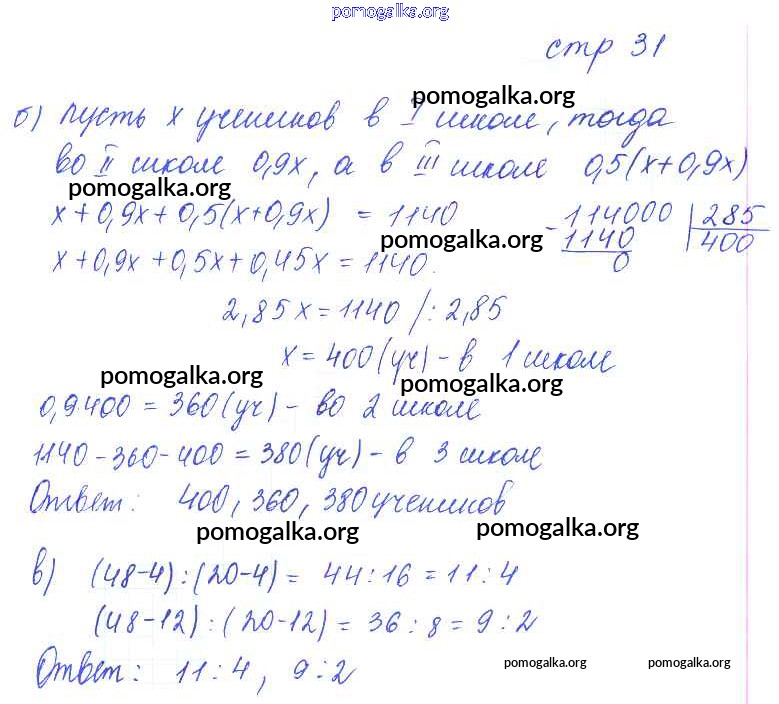 pomogalka.org
стр 31
pomogalka.org
б) Пусть х учеников в I школе, тогда
во II школе 0,9х, а в III школе 0,5(х+0,9х)
pomogalka.org
х+0,9х+0,5(х+0,9х) = 1140
-114000 | 285
1140 400
0
pomogalka.org
х+0,9х+0,5х+0,45х=1140.
2,85х=1140 /:2,85
х=400(уч)-в 1 школе
pomogalka.org pomogalka.org
0,9 400 = 360(уч)- во 2 школе
1140-360-400=380(уч)-в 3 школе
Ответ: 400, 360, 380 учеников
pomogalka.org pomogalka.org
в) (48-4):(20-4)= 44:16=11:4
(48-12):(20-12)=36:8=9:2
Ответ: 11:4, 9:2
pomogalka.org pomogalka.org